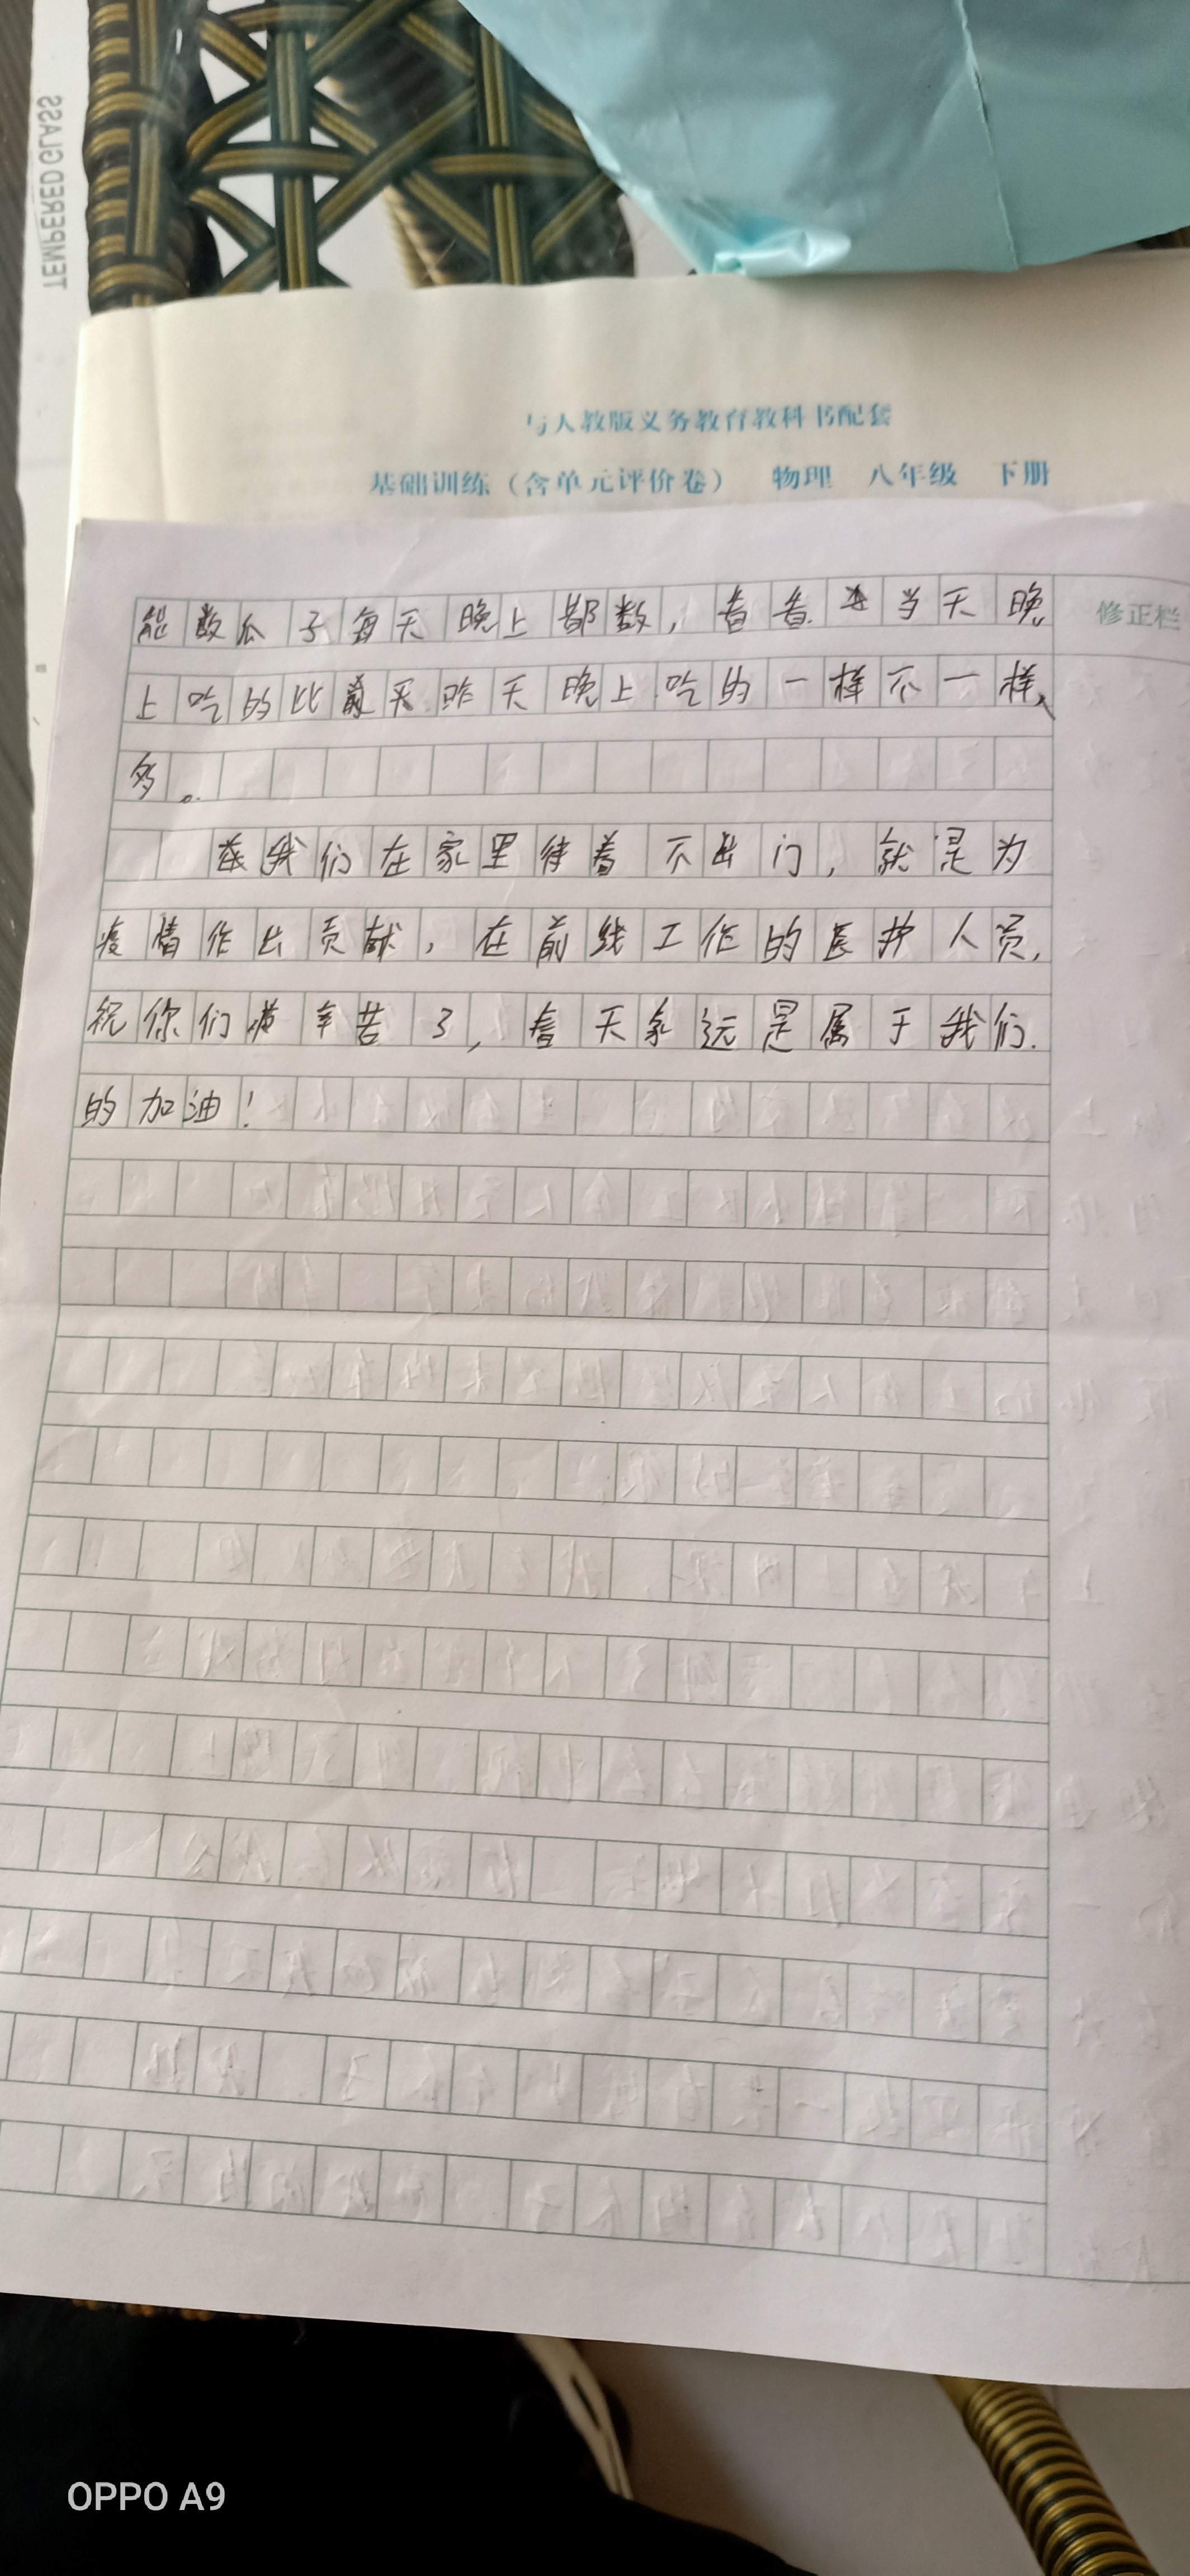 TEMPERED GLASS
与人教版义务教育教科书配套
基础训练（含单元评价卷） 物理 八年级 下册
修正栏
能数瓜子每天晚上都数，看看当天晚
上吃的比前天昨天晚上吃的一样不一样、
多。
我们在家里待着不出门，就是为
疫情作出贡献，在前线工作的医护人员，
祝你们辛苦了，春天永远是属于我们
的加油！
OPPO A9